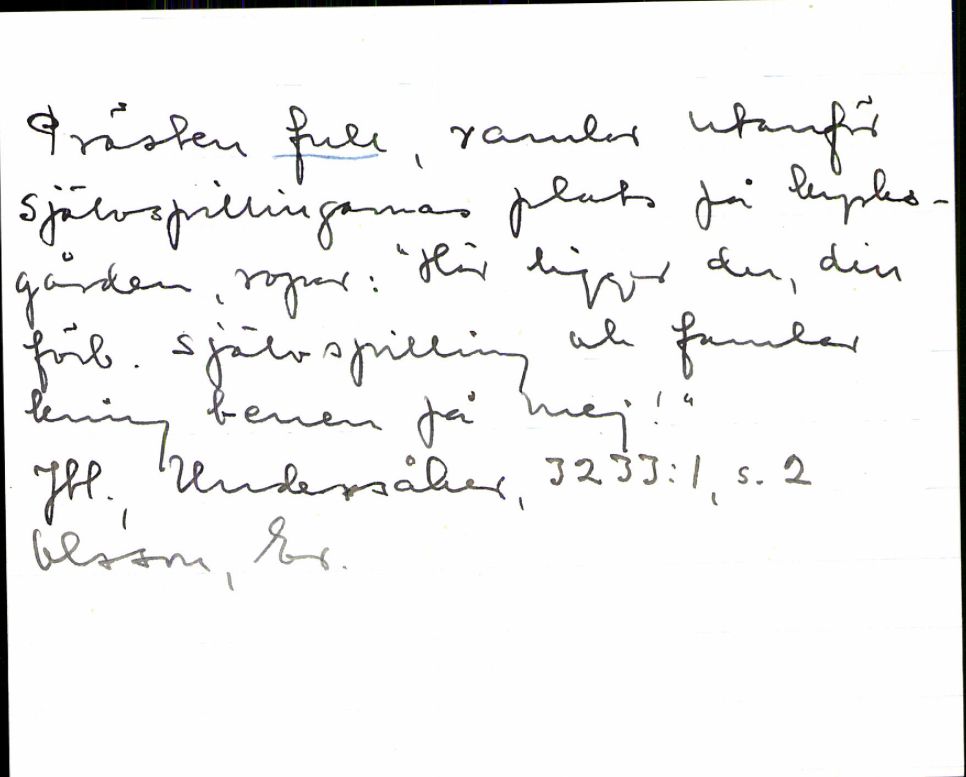 Prästen full, ramlar utanför
självspillingarnas plats på kyrko-
gården, ropar: "Här ligger du, din
förb. självspilling och famlar
kring benen på mej!"
Jtl., Undersåker, 3233:1, s. 2
Olsson, Er.